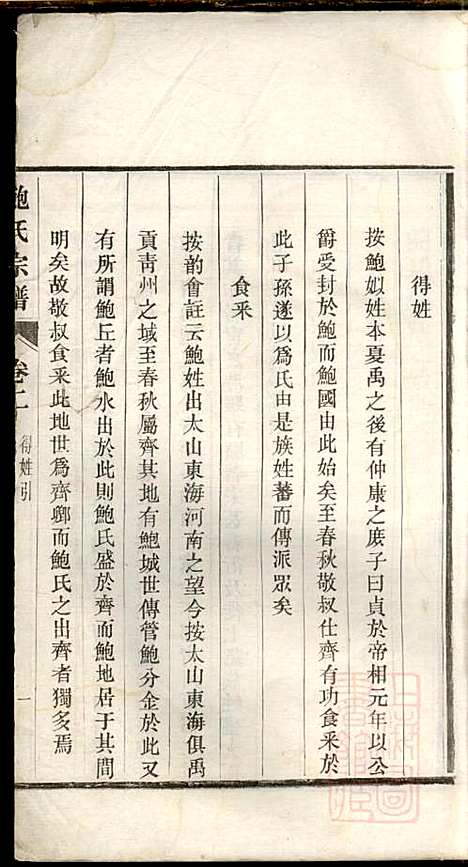 得姓
按鮑姒姓本夏禹之後有仲康之庶子曰貞於帝相元年以公
爵受封於鮑而鮑國由此始矣至春秋敬叔仕齊有功食采於
此子孫遂以爲氏由是族姓蕃而傳派眾矣
食采
按韵會註云鮑姓出太山東海河南之望今按太山東海俱禹
貢靑州之域至春秋屬齊其地有鮑城世傳管鮑分金於此又
有所謂鮑丘者鮑水出於此則鮑氏盛於齊而鮑地居于其間
明矣故敬叔食釆此地世爲齊鄉而鮑氏之出齊者獨多焉
鮑氏宗譜
卷二
得姓引
一